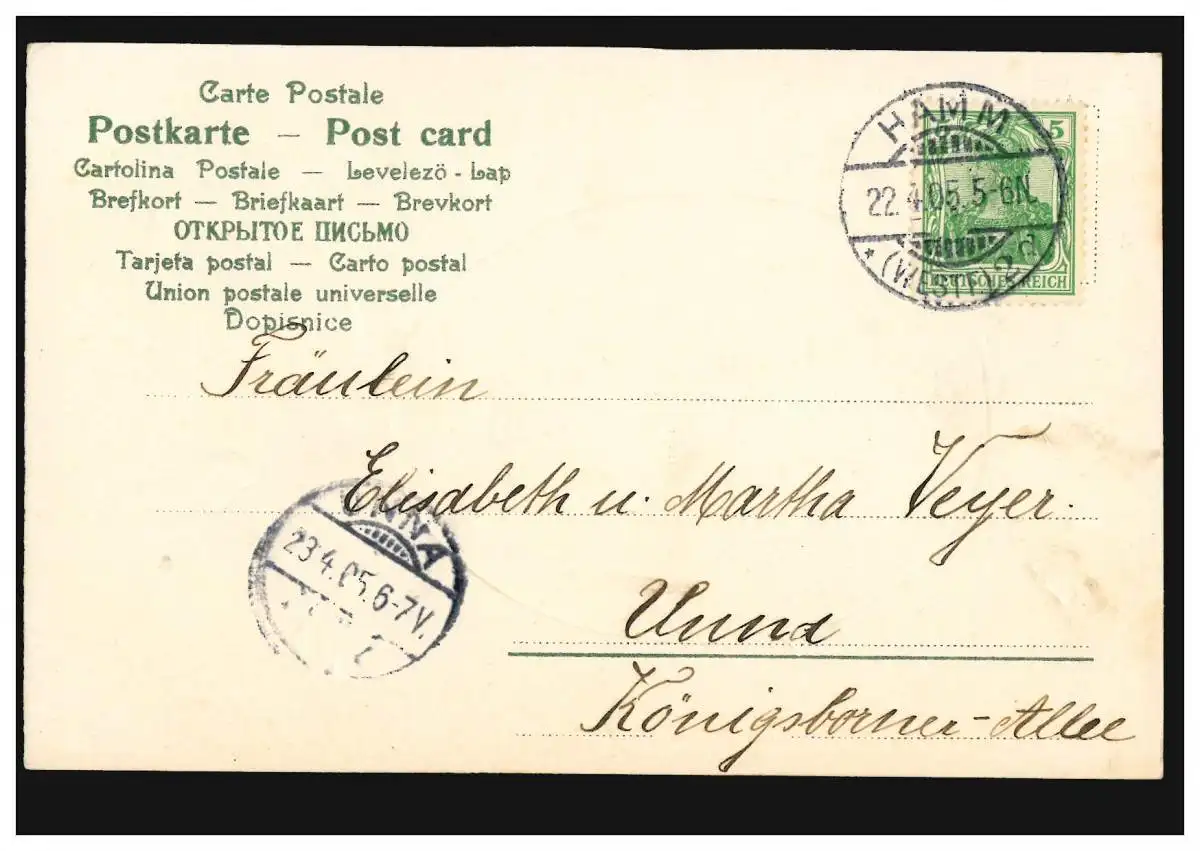 Carte Postale
Postkarte — Post card
Cartolina Postale — Levelezö - Lap
Brefkort — Briefkaart — Brevkort
ОТКРЫТОЕ ПИСЬМО
Tarjeta postal — Carto postal
Union postale universelle
Dopisnice
HAMM
22.4.05.5-6N.
* (WESTF.) 2 d
5
DEUTSCHES REICH
Fräulein
Elisabeth u. Martha Veyer.
UNNA
23.4.05.6-7V.
Unna
Königsborner-Allee